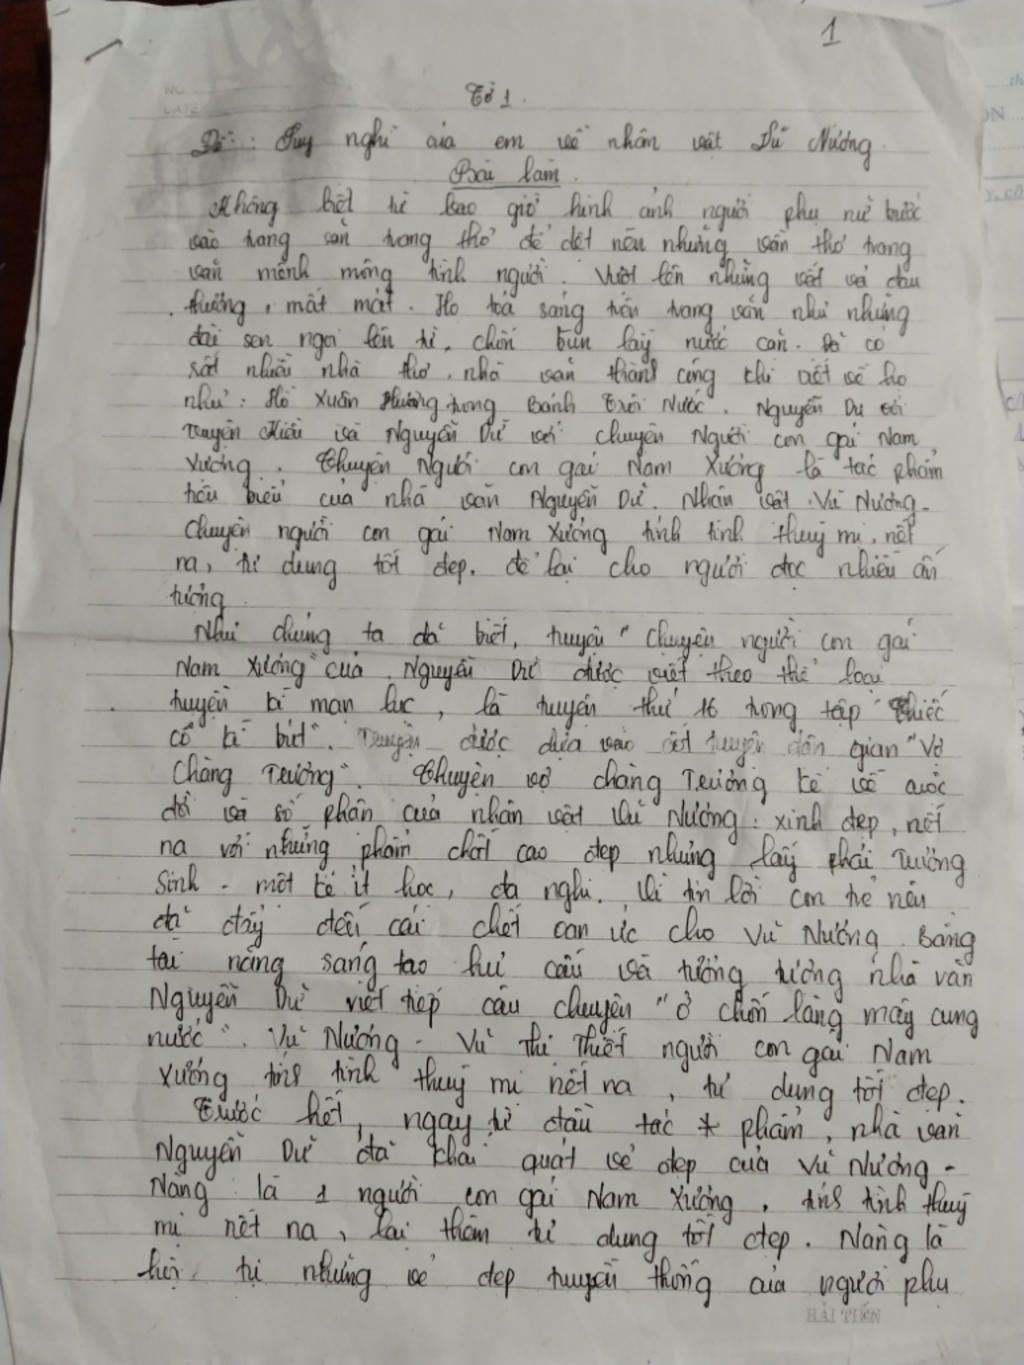 1
Tờ 1.
Đề: Suy nghĩ của em về nhân vật Vũ Nương.
Bài làm.
Không biết từ bao giờ hình ảnh người phụ nữ bước
vào trang văn trang thơ để dệt nên những vần thơ trang
văn mênh mông tình người. Vượt lên những vất vả đau
thương, mất mát. Họ toả sáng trên trang văn như những
đài sen ngoi lên từ chốn bùn lầy nước cạn. Đã có
rất nhiều nhà thơ, nhà văn thành công khi viết về họ
như: Hồ Xuân Hương trong Bánh Trôi Nước, Nguyễn Du với
Truyện Kiều và Nguyễn Dữ với chuyện Người con gái Nam
Xương. Chuyện Người con gái Nam Xương là tác phẩm
tiêu biểu của nhà văn Nguyễn Dữ. Nhân vật Vũ Nương-
Chuyện người con gái Nam Xương tính tình thuỳ mị, nết
na, tư dung tốt đẹp. để lại cho người đọc nhiều ấn
tượng
Như chúng ta đã biết, truyện "Chuyện người con gái
Nam Xương" của Nguyễn Dữ được viết theo thể loại
truyện kì mạn lục, là truyện thứ 16 trong tập "Thiếc
cổ kì bút". Truyện được dựa vào cốt truyện dân gian "Vợ
Chàng Trương". Chuyện vợ chàng Trương kể về cuộc
đời và số phận của nhân vật Vũ Nương: xinh đẹp, nết
na với những phẩm chất cao đẹp nhưng lấy phải Trương
Sinh - một kẻ ít học, đa nghi. Vì tin lời con trẻ nên
đã đẩy đến cái chết oan ức cho Vũ Nương. Bằng
tài năng sáng tạo hư cấu và tưởng tượng nhà văn
Nguyễn Dữ viết tiếp câu chuyện "ở chốn làng mây cung
nước". Vũ Nương - Vũ Thị Thiết người con gái Nam
Xương tính tình thuỳ mị nết na, tư dung tốt đẹp.
Trước hết, ngay từ đầu tác * phẩm, nhà văn
Nguyễn Dữ đã khái quát vẻ đẹp của Vũ Nương -
Nàng là 1 người con gái Nam Xương, tính tình thuỳ
mị nết na, lại thêm tư dung tốt đẹp. Nàng là
hội tụ những vẻ đẹp truyền thống của người phụ
HẢI TIẾN